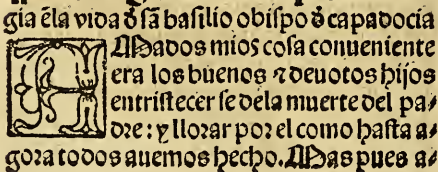 gia ẽla vida d̓ sã basilio obispo d̓ capadocia
AMados mios cosa conueniente
era los buenos ⁊ deuotos hijos
entristecer se dela muerte del pa/
dre: y llorar por el como hasta a/
gora todos auemos hecho. Mas pues a/